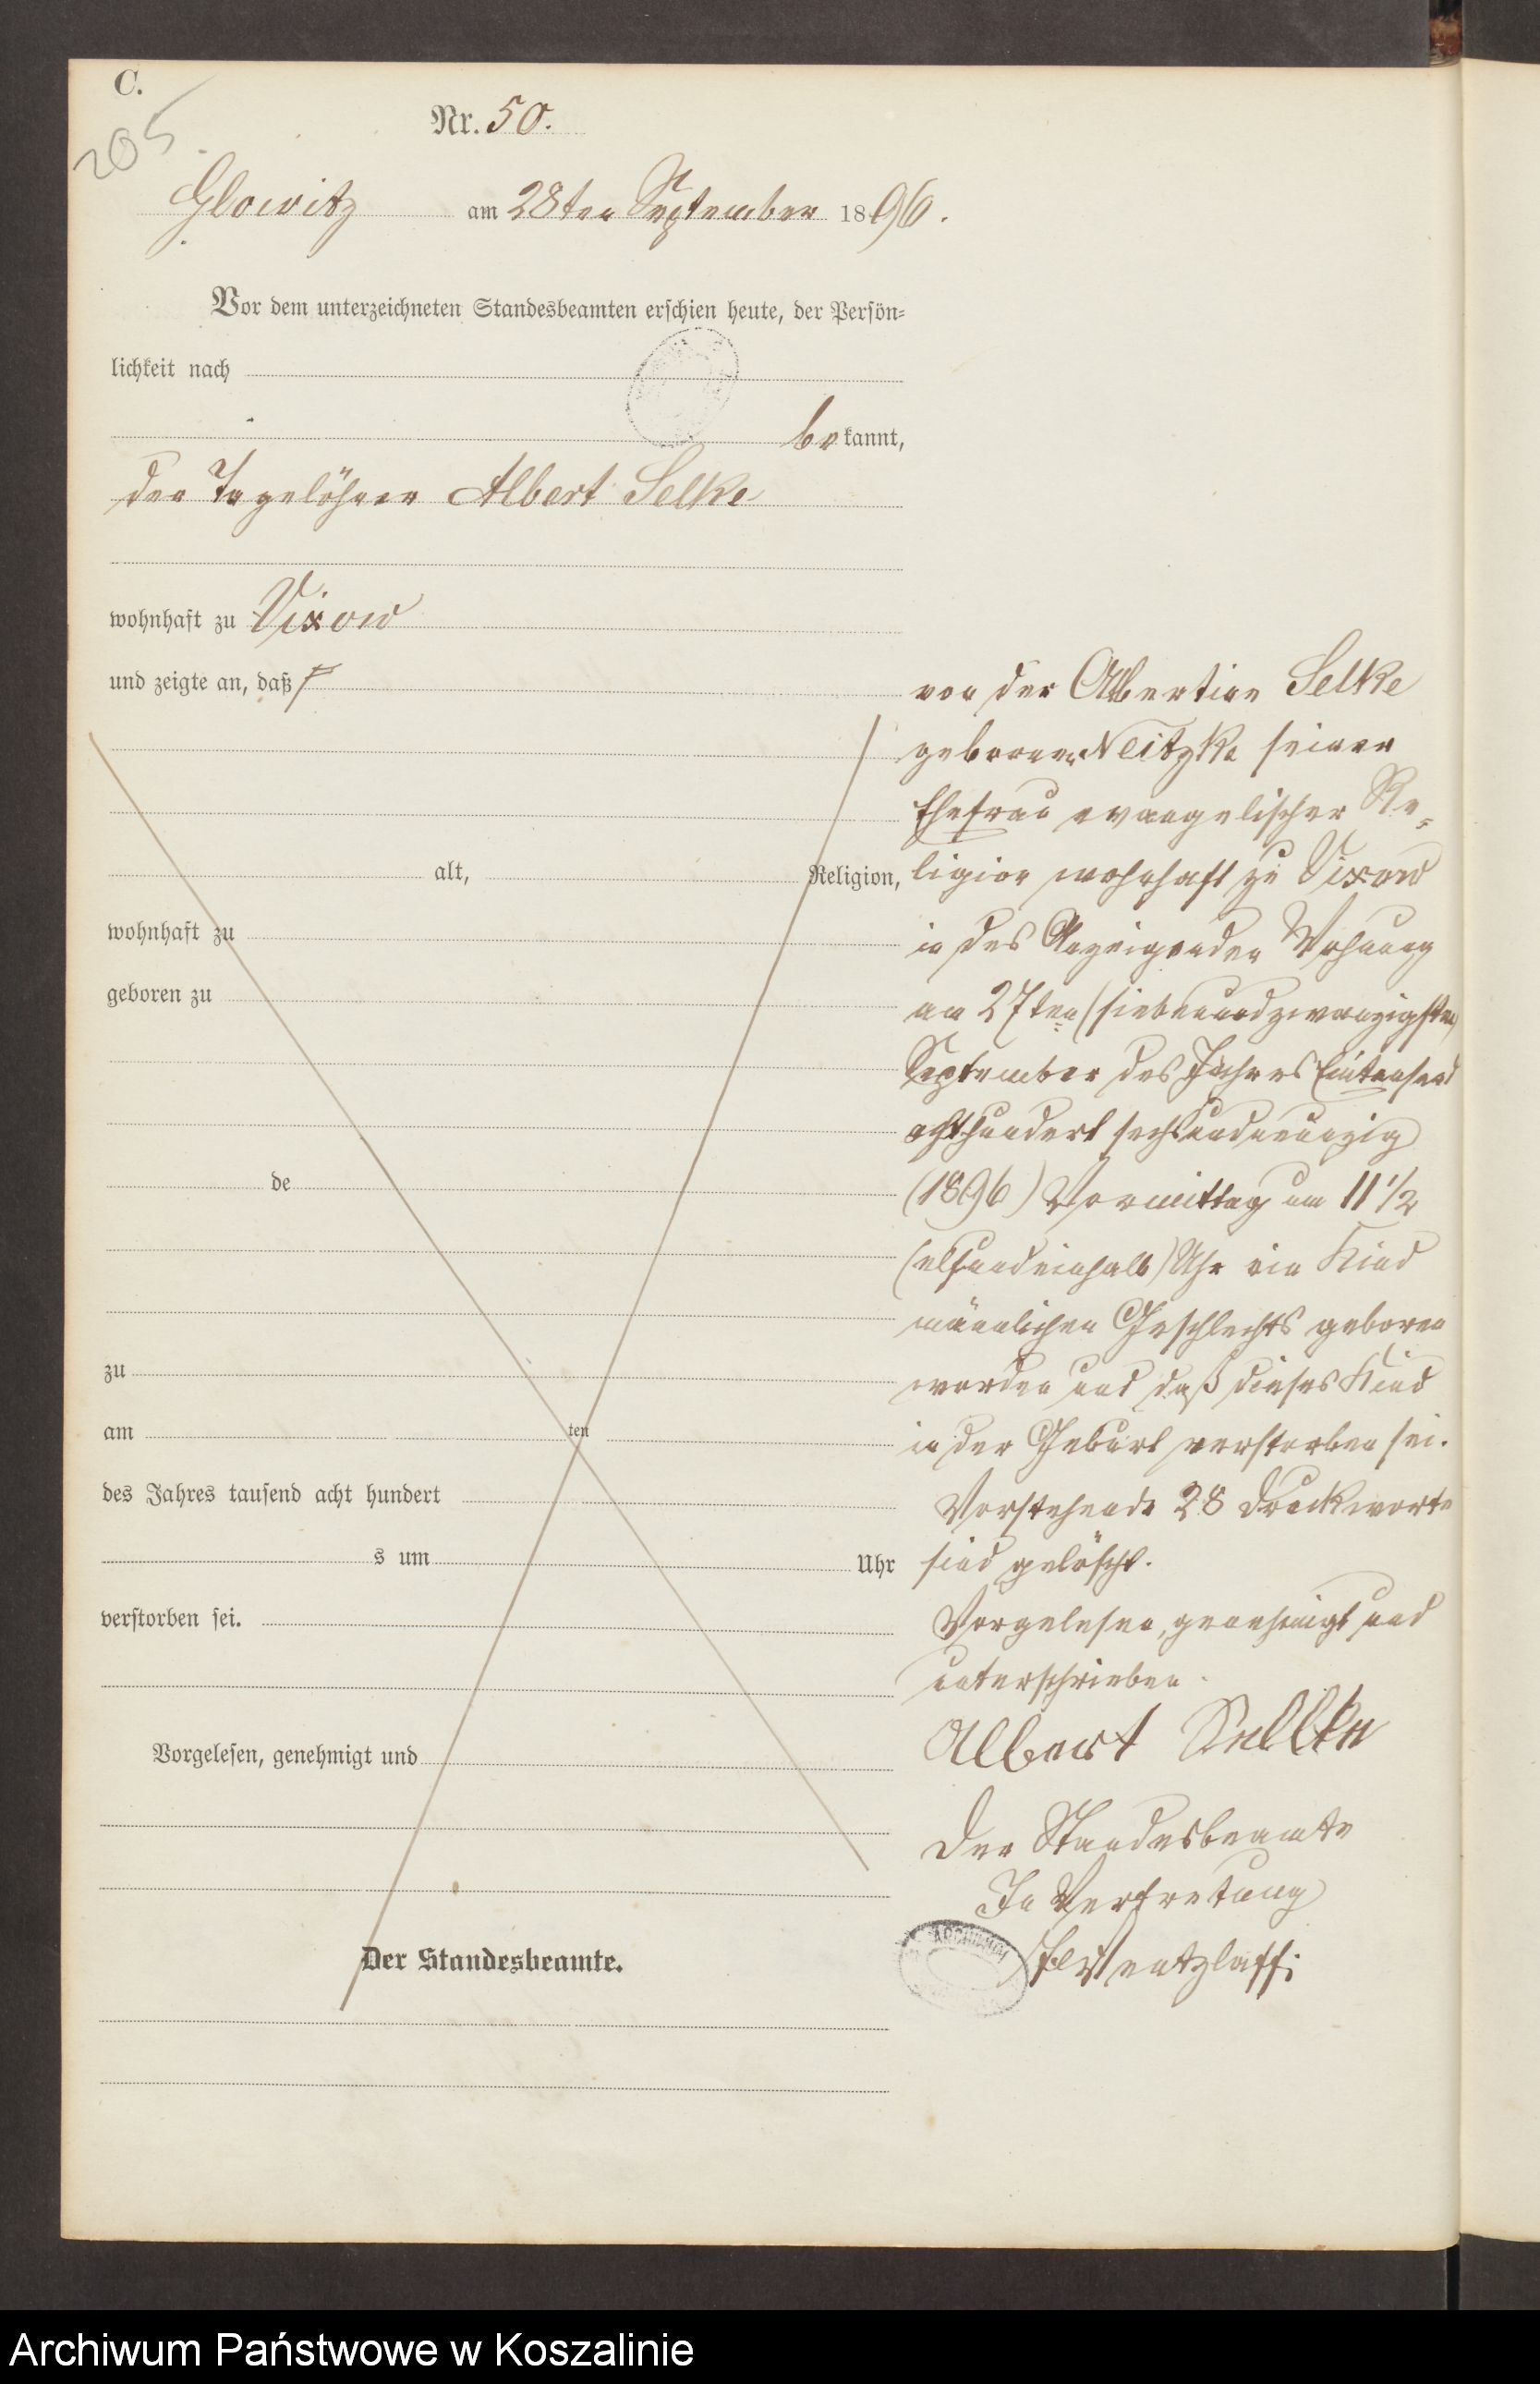 C.
205
Nr. 50.
Glowitz am 28ten September 1896.
Vor dem unterzeichneten Standesbeamten erschien heute, der Persön-
lichkeit nach
bekannt,
der Tagelöhner Albert Selke
wohnhaft zu Vixow
und zeigte an, daß
alt, Religion,
wohnhaft zu
geboren zu
de
zu
am ten
des Jahres tausend acht hundert
s um Uhr
verstorben sei.
Vorgelesen, genehmigt und
Der Standesbeamte.
von der Albertine Selke
geborenen Neitzke seiner
Ehefrau evangelischer Re-
ligion wohnhaft zu Vixow
in des Anzeigenden Wohnung
am 27ten (siebenundzwanzigsten)
September des Jahres Eintausend
achthundert sechsundneunzig
(1896) Vormittag um 11 1/2
(elfundeinhalb) Uhr ein Kind
männlichen Geschlechts geboren
worden und daß dieses Kind
in der Geburt verstorben sei.
Vorstehende 28 Druckworte
sind gelöscht.
Vorgelesen, genehmigt und
unterschrieben.
Albert Sellke
Der Standesbeamte
In Vertretung
Wentzlaff
Archiwum Państwowe w Koszalinie